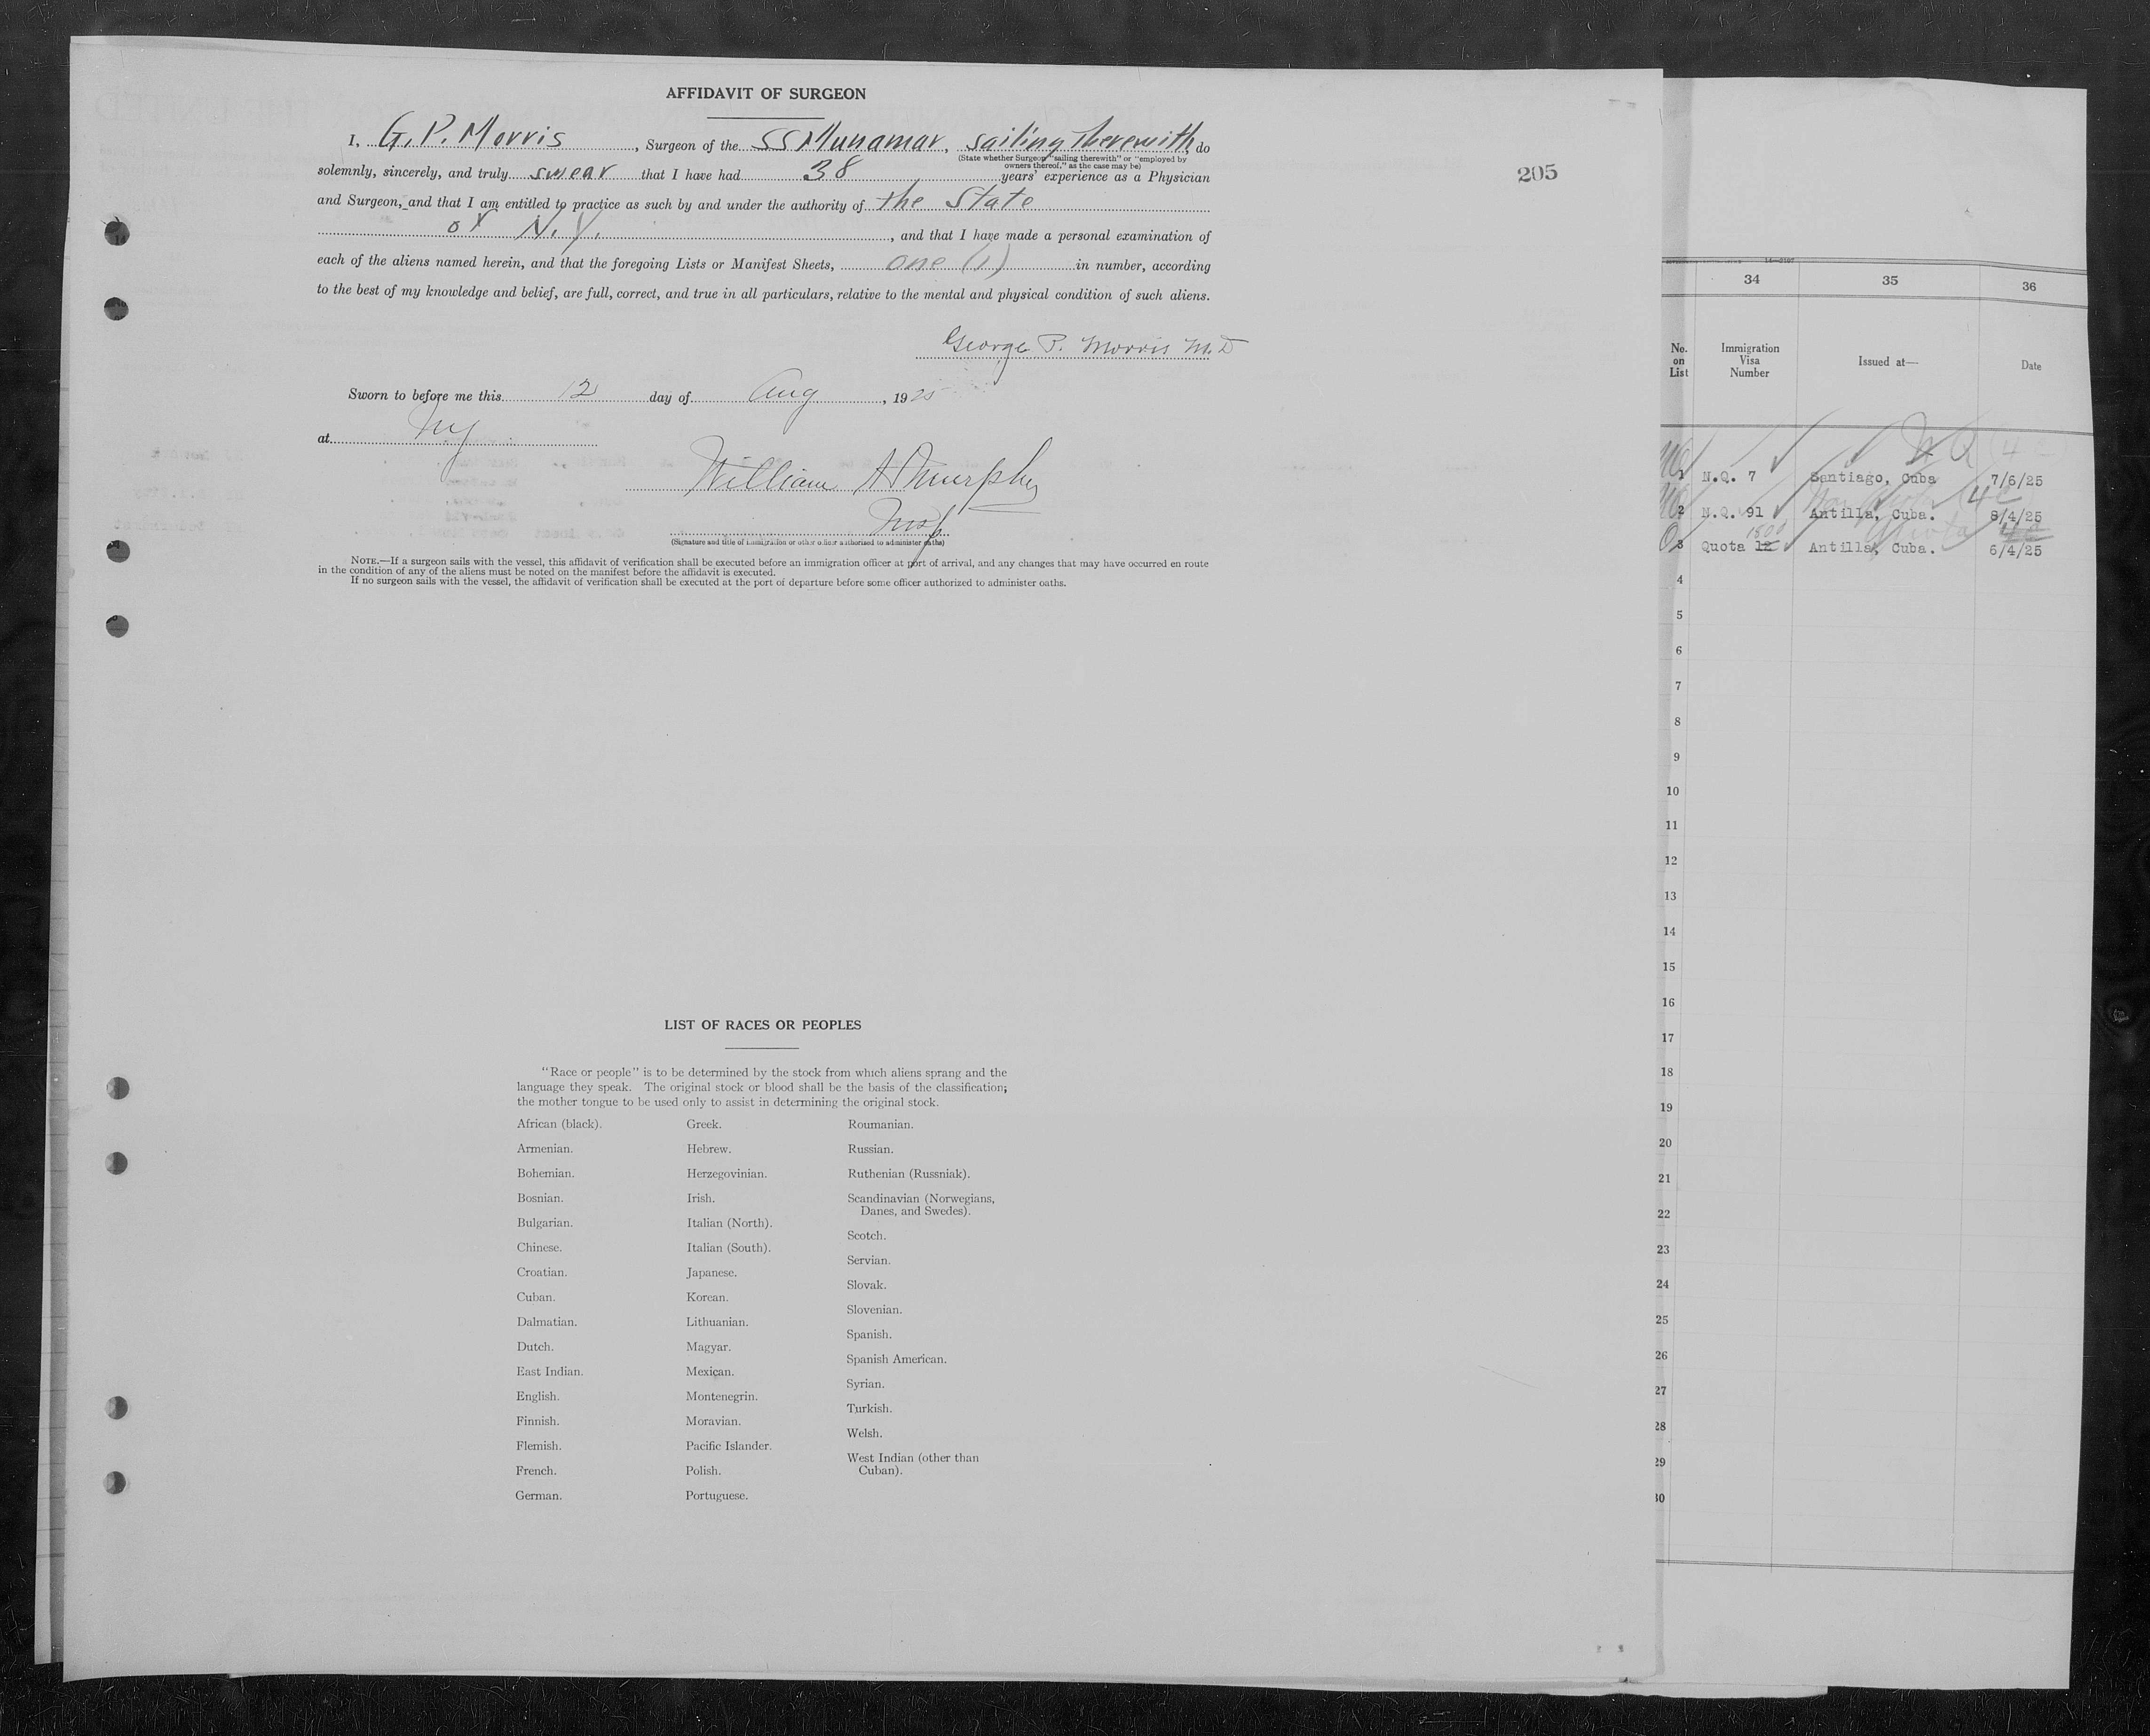 AFFIDAVIT OF SURGEON
I, G. P. Morris, Surgeon of the SS Munamar, sailing therewith, do
(State whether Surgeon "sailing therewith" or "employed by
owners thereof," as the case may be)
solemnly, sincerely, and truly swear that I have had 38 years' experience as a Physician
and Surgeon, and that I am entitled to practice as such by and under the authority of the State
of N.Y., and that I have made a personal examination of
each of the aliens named herein, and that the foregoing Lists or Manifest Sheets, one (1) in number, according
to the best of my knowledge and belief, are full, correct, and true in all particulars, relative to the mental and physical condition of such aliens.
George P. Morris M.D
Sworn to before me this 12 day of Aug, 1925
at NY
William A Murphy
Insp
(Signature and title of immigration or other officer authorised to administer oaths)
NOTE.—If a surgeon sails with the vessel, this affidavit of verification shall be executed before an immigration officer at port of arrival, and any changes that may have occurred en route
in the condition of any of the aliens must be noted on the manifest before the affidavit is executed.
If no surgeon sails with the vessel, the affidavit of verification shall be executed at the port of departure before some officer authorized to administer oaths.
205
LIST OF RACES OR PEOPLES
"Race or people" is to be determined by the stock from which aliens sprang and the
language they speak. The original stock or blood shall be the basis of the classification;
the mother tongue to be used only to assist in determining the original stock.
African (black).
Armenian.
Bohemian.
Bosnian.
Bulgarian.
Chinese.
Croatian.
Cuban.
Dalmatian.
Dutch.
East Indian.
English.
Finnish.
Flemish.
French.
German.
Greek.
Hebrew.
Herzegovinian.
Irish.
Italian (North).
Italian (South).
Japanese.
Korean.
Lithuanian.
Magyar.
Mexican.
Montenegrin.
Moravian.
Pacific Islander.
Polish.
Portuguese.
Roumanian.
Russian.
Ruthenian (Russniak).
Scandinavian (Norwegians,
Danes, and Swedes).
Scotch.
Servian.
Slovak.
Slovenian.
Spanish.
Spanish American.
Syrian.
Turkish.
Welsh.
West Indian (other than
Cuban).
34 35 36
No.
on
List
Immigration
Visa
Number
Issued at—
Date
N.Q. 7 Santiago, Cuba 7/6/25
2 N.Q. 91 Antilla, Cuba. 8/4/25
3 Quota 12 Antilla, Cuba. 6/4/25
4
5
6
7
8
9
10
11
12
13
14
15
16
17
18
19
20
21
22
23
24
25
26
27
28
29
30